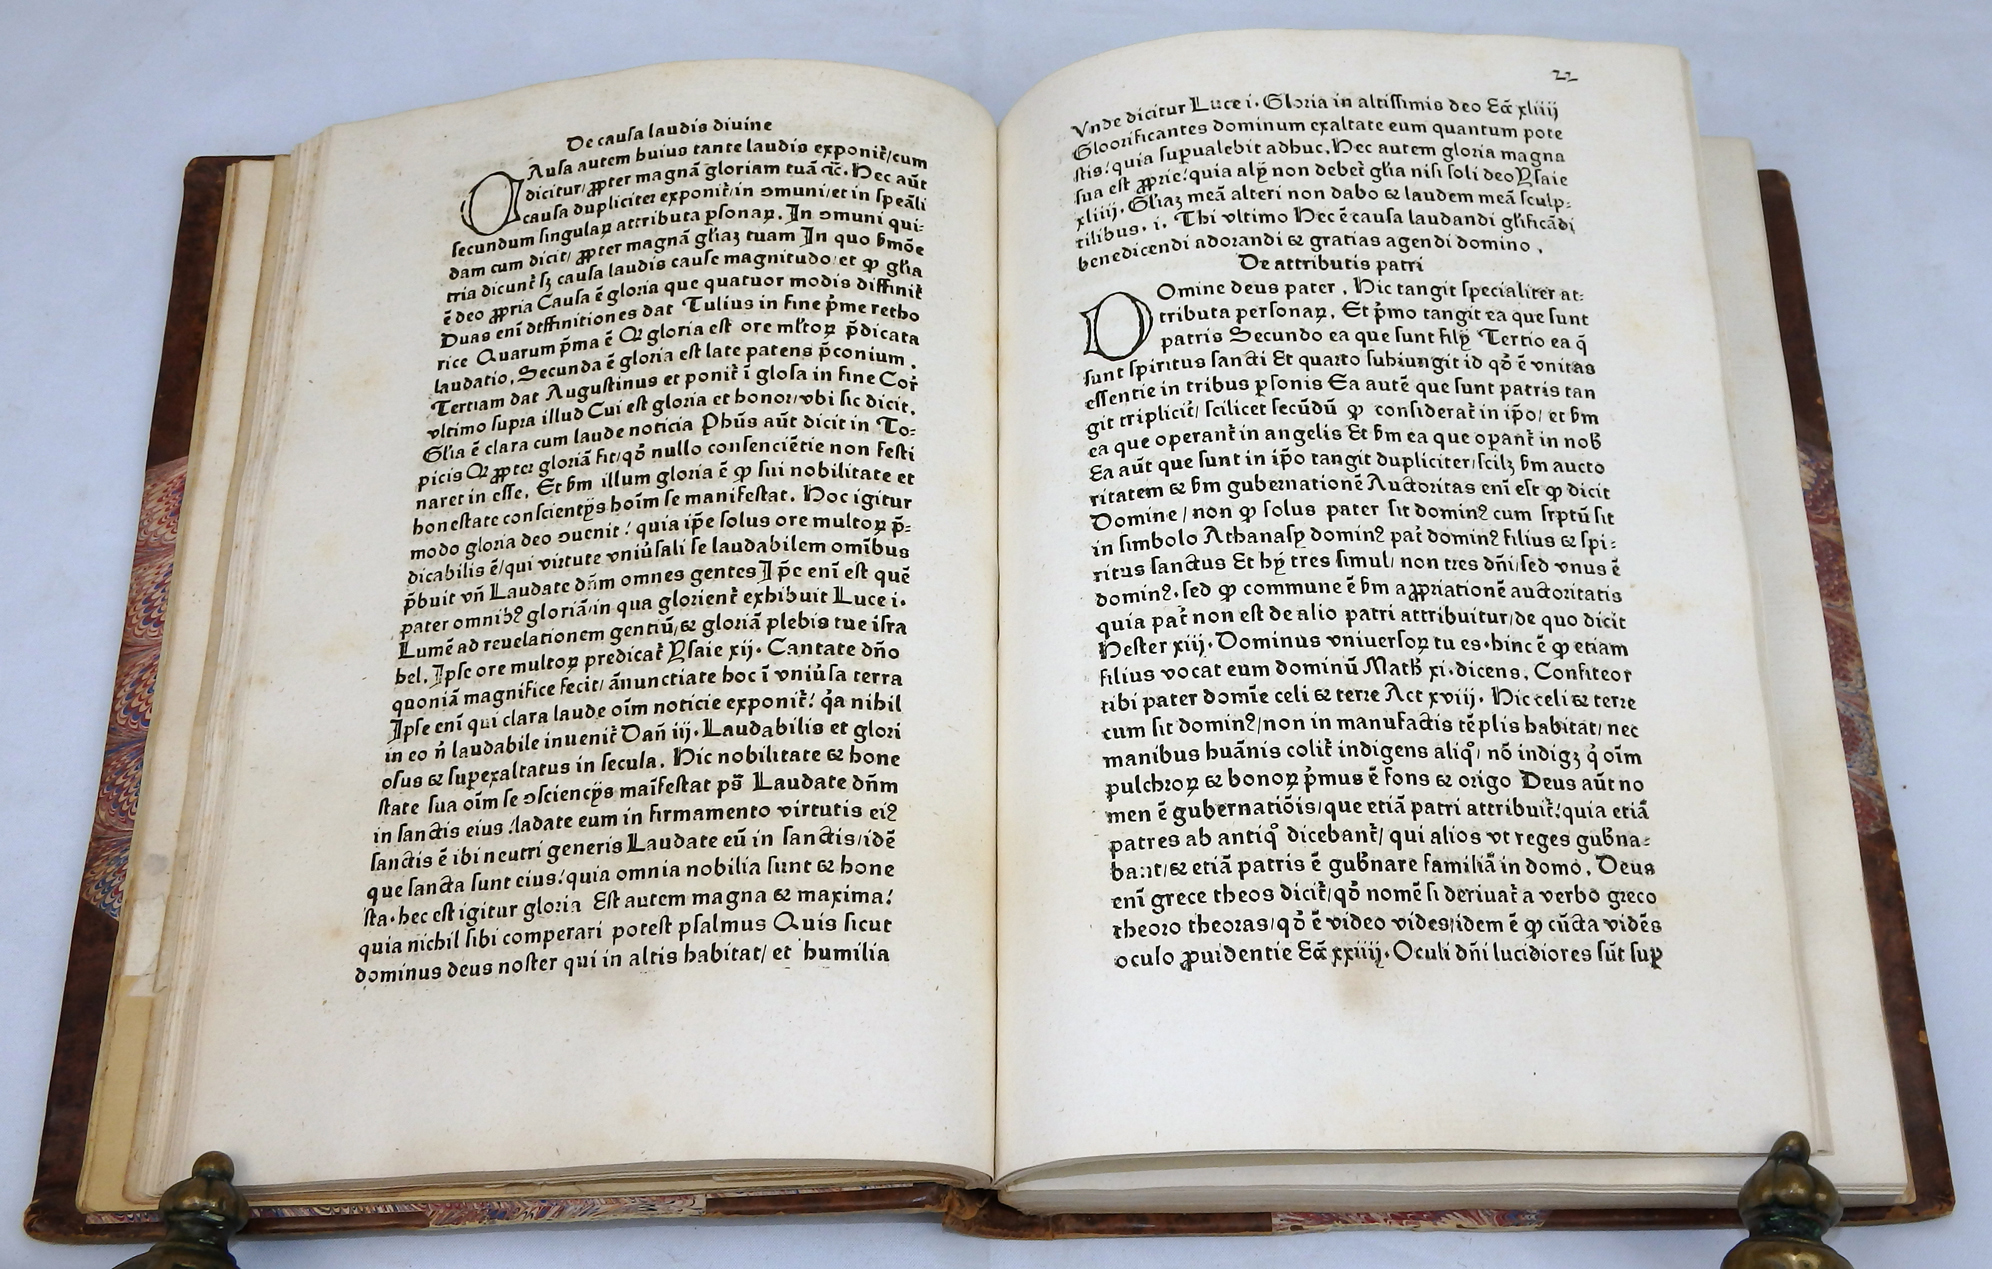 De causa laudis divine
CAusa autem huius tante laudis exponit̄/cum
dicitur/ ꝓpter magnā gloriam tuā ⁊c̄. Hec aūt
causa dupliciter exponit̄/in ꝯmuni/et in speāli
secundum singulaꝝ attributa ꝑsonaꝝ. In ꝯmuni qui⸗
dam cum dicit/ ꝓpter magnā gl̄iaꝫ tuam In quo ẜmōe
tria dicunt̄ sꝫ causa laudis cause magnitudo/et ꝙ gl̄ia
ē deo ꝓpria Causa ē gloria que quatuor modis diffinit̄
Duas enī deffinitiones dat Tulius in fine p̄me retho
rice Quarum p̄ma ē Q2 gloria est ore ml̄toꝝ p̄dicata
laudatio. Secunda ē gloria est late patens p̄conium .
Tertiam dat Augustinus et ponit̄ ī glosa in fine Cor̄
vltimo supra illud Cui est gloria et honor/vbi sic dicit.
Gl̄ia ē clara cum laude noticia Ph̄us aūt dicit in To⸗
picis Q2 ꝓpter gloriā fit/qō nullo consenciētie non festi
naret in esse. Et ẜm illum gloria ē ꝙ sui nobilitate et
honestate conscientijs hoīm se manifestat. Hoc igitur
modo gloria deo ꝯuenit! quia ip̄e solus ore multoꝝ p̄⸗
dicabilis ē/qui virtute vniūsali se laudabilem omībus
p̄buit vn̄ Laudate dn̄m omnes gentes Ip̄e enī est quē
pater omnibꝰ gloriā/in qua glorient̄ exhibuit Luce i.
Lumē ad reuelationem gentiū/⁊ gloriā plebis tue isra
hel. Ipse ore multoꝝ predicat̄ Ysaie xij. Cantate dn̄o
quoniā magnifice fecit/ ān̄unctiate hoc ī vniūsa terra
Ipse enī qui clara laude oīm noticie exponit̄! q̄a nihil
in eo n̄ laudabile inuenit̄ Dan̄ iij. Laudabilis et glori
osus ⁊ suꝑexaltatus in secula. Hic nobilitate ⁊ hone
state sua oīm se ꝯsciencijs maīfestat ps̄ Laudate dn̄m
in sanctis eius /ladate eum in firmamento virtutis eiꝰ
sanctis ē ibi neutri generis Laudate eū in sanctis/idē
que sancta sunt eius! quia omnia nobilia sunt ⁊ hone
sta. hec est igitur gloria Est autem magna ⁊ maxima!
quia nichil sibi comperari potest psalmus Quis sicut
dominus deus noster qui in altis habitat/ et humilia
22
Vnde dicitur Luce i. Gloria in altissimis deo Ec̄c xliiij
Gloorificantes dominum exaltate eum quantum pote
stis! quia suꝑualebit adhuc. Hec autem gloria magna
sua est ꝓprie! quia alij non debet̄ gl̄ia nisi soli deo Ysaie
xliiij. Gl̄iaꝫ meā alteri non dabo ⁊ laudem meā sculp⸗
tilibus. i. Thi vltimo Hec ē causa laudandi gl̄ificādi
benedicendi adorandi ⁊ gratias agendi domino .
De attributis patri
DOmine deus pater . Hic tangit specialiter at⸗
tributa personaꝝ. Et p̄mo tangit ea que sunt
patris Secundo ea que sunt filij Tertio ea q̄
sunt spiritus sancti Et quarto subiungit id qō ē vnitas
essentie in tribus ꝑsonis Ea autē que sunt patris tan
git triplicit̄/ scilicet secūdū ꝙ considerat̄ in ip̄o/ et ẜm
ea que operant̄ in angelis Et ẜm ea que opant̄ in nob̄
Ea aūt que sunt in ip̄o tangit dupliciter/scilꝫ ẜm aucto
ritatem ⁊ ẜm gubernationē Auctoritas enī est ꝙ dicit
Domine / non ꝙ solus pater sit dominꝰ cum srptū sit
in simbolo Athanasij dominꝰ pat̄ dominꝰ filius ⁊ spi⸗
ritus sanctus Et hij tres simul/ non tres dn̄i/sed vnus ē
dominꝰ. sed ꝙ commune ē ẜm aꝓpriationē auctoritatis
quia pat̄ non est de alio patri attribuitur/de quo dicit
Hester xiij. Dominus vniuersoꝝ tu es. hinc ē ꝙ etiam
filius vocat eum dominū Math̄ xi. dicens. Confiteor
tibi pater domīe celi ⁊ terre Act xviij. Hic celi ⁊ terre
cum sit dominꝰ/non in manufactis tēplis habitat/ nec
manibus huānis colit̄ indigens aliq̄/ nō indigꝫ q̄ oīm
pulchroꝝ ⁊ bonoꝝ p̄mus ē fons ⁊ origo Deus aūt no
men ē gubernatiōis/que etiā patri attribuit̄! quia etiā
patres ab antiq̄ dicebant̄/ qui alios vt reges gub̄na⸗
bant/⁊ etiā patris ē gub̄nare familiā in domo. Deus
enī grece theos dicit̄/qō nomē si deriuat̄ a verbo greco
theoro theoras/qō ē video vides/idem ē ꝙ cūcta vidēs
oculo ꝓuidentie Ec̄c xxiiij. Oculi dn̄i lucidiores sūt suꝑ